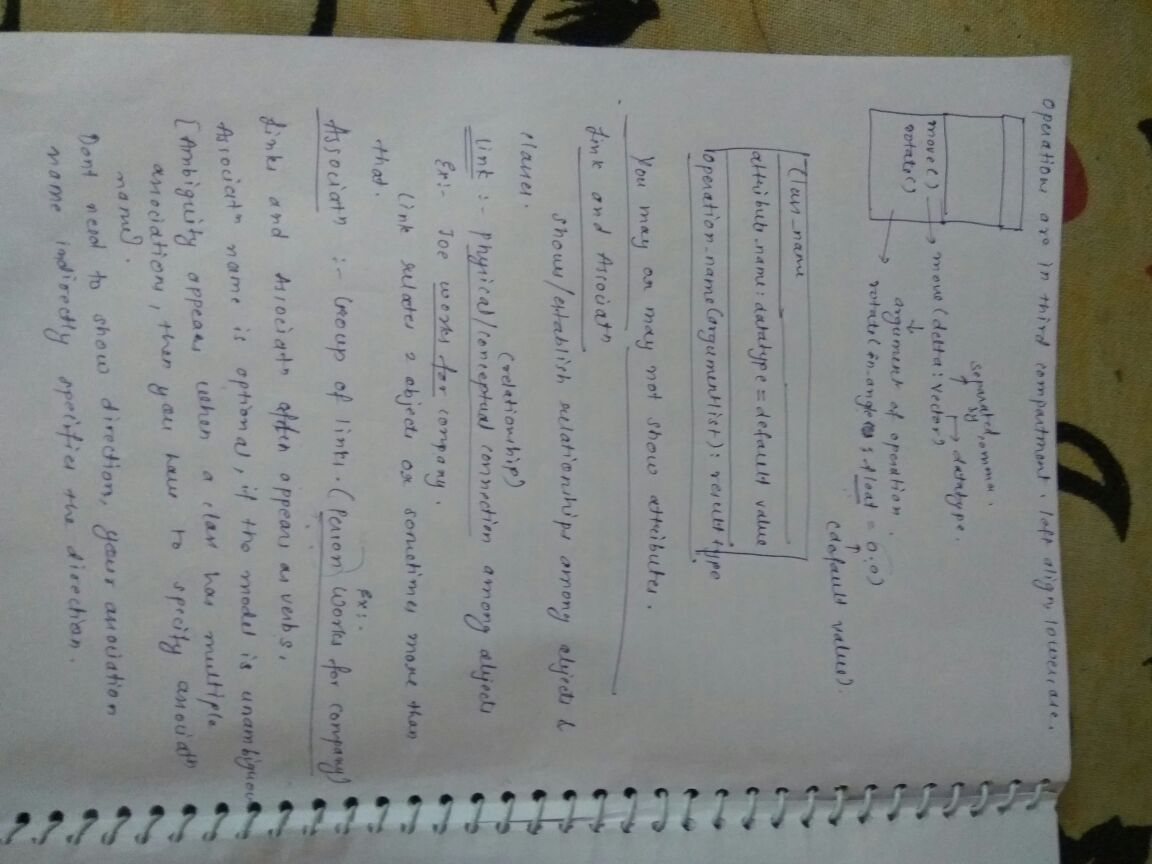 operations are in third compartment. left align, lowercase.
separated by comma.
move() → move(delta: Vector) → datatype.
argument of operation.
rotate() → rotate(in angle : float = 0.0)
(default value).
Class_name
attribute_name: datatype = default value
operation_name(argumentlist): result type
You may or may not show attributes.
Link and Associatn
shows/establish relationships among objects &
classes.
(relationship)
Link :- physical/conceptual connection among objects
Ex:- Joe works for company.
Link relates 2 objects or sometimes more than
that.
Ex:-
Associatn :- Group of links. (Person works for company)
Links and Associatn often appears as verbs.
Associatn name is optional, if the model is unambiguou
[Ambiguity appears when a class has multiple
associations, then you have to specify associatn
name].
Dont need to show direction, your association
name indirectly specifies the direction.